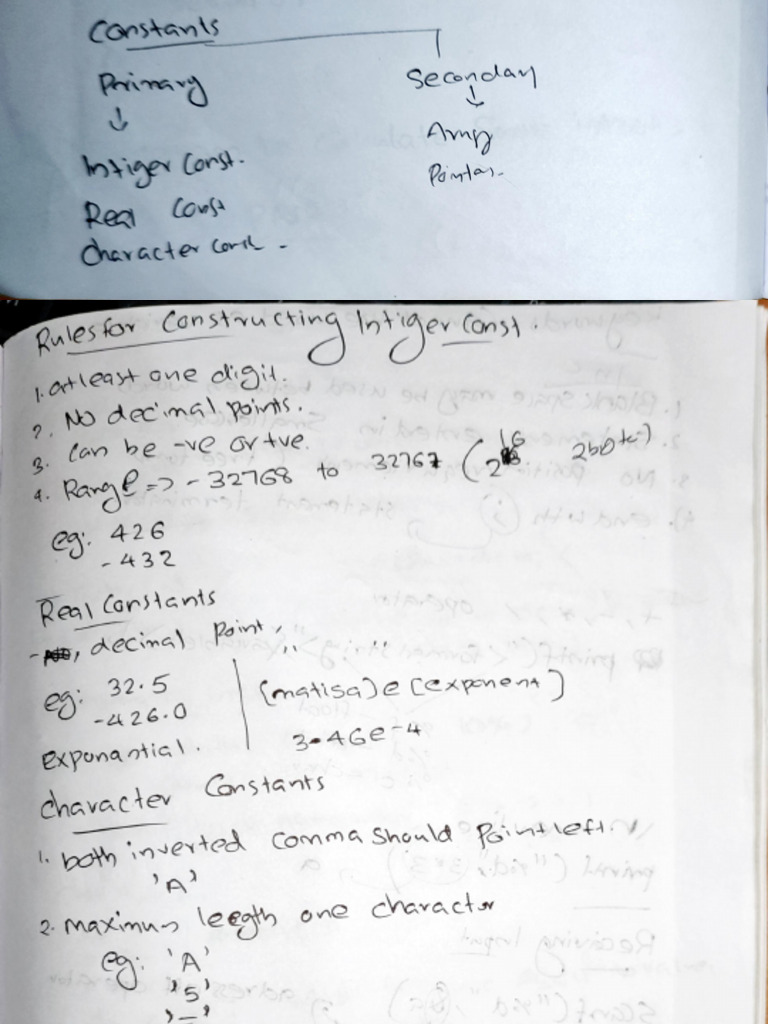 Constants
Primary
Secondary
↓
↓
Array
Intiger Const.
Pointer.
Real Const
Character Const.
Rules for Constructing Intiger Const.
1. atleast one digit.
2. No decimal points.
3. Can be -ve or +ve.
4. Range => -32768 to 32767 (2^16
eg: 426
-432
Real Constants
decimal Point
eg: 32.5
-426.0
(matisa)e(exponent)
3.46e-4
exponantial.
Character Constants
1. both inverted comma should Point left.
'A'
2. maximum leegth one character
eg: 'A'
'5'
'-'